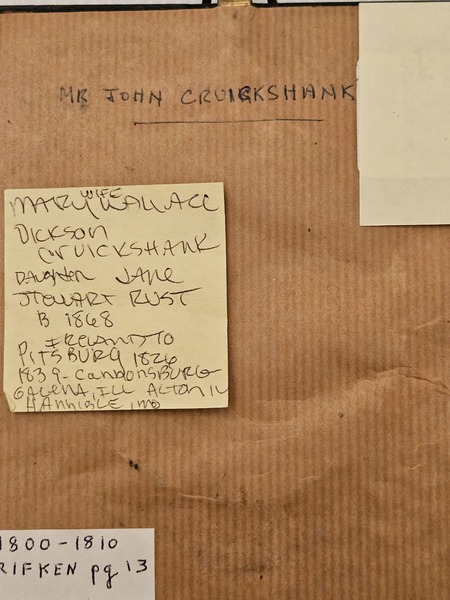 MR JOHN CRUICKSHANK
WIFE
MARY WALLACE
DICKSON
CRUICKSHANK
DAUGHTER JANE
STEWART RUST
B 1868
IRELAND TO
PITSBURG 1826
1839- CANBONSBURG
GALENA, ILL ALTON IL
HANNIBLE, MO
1800-1810
RIFKEN pg 13